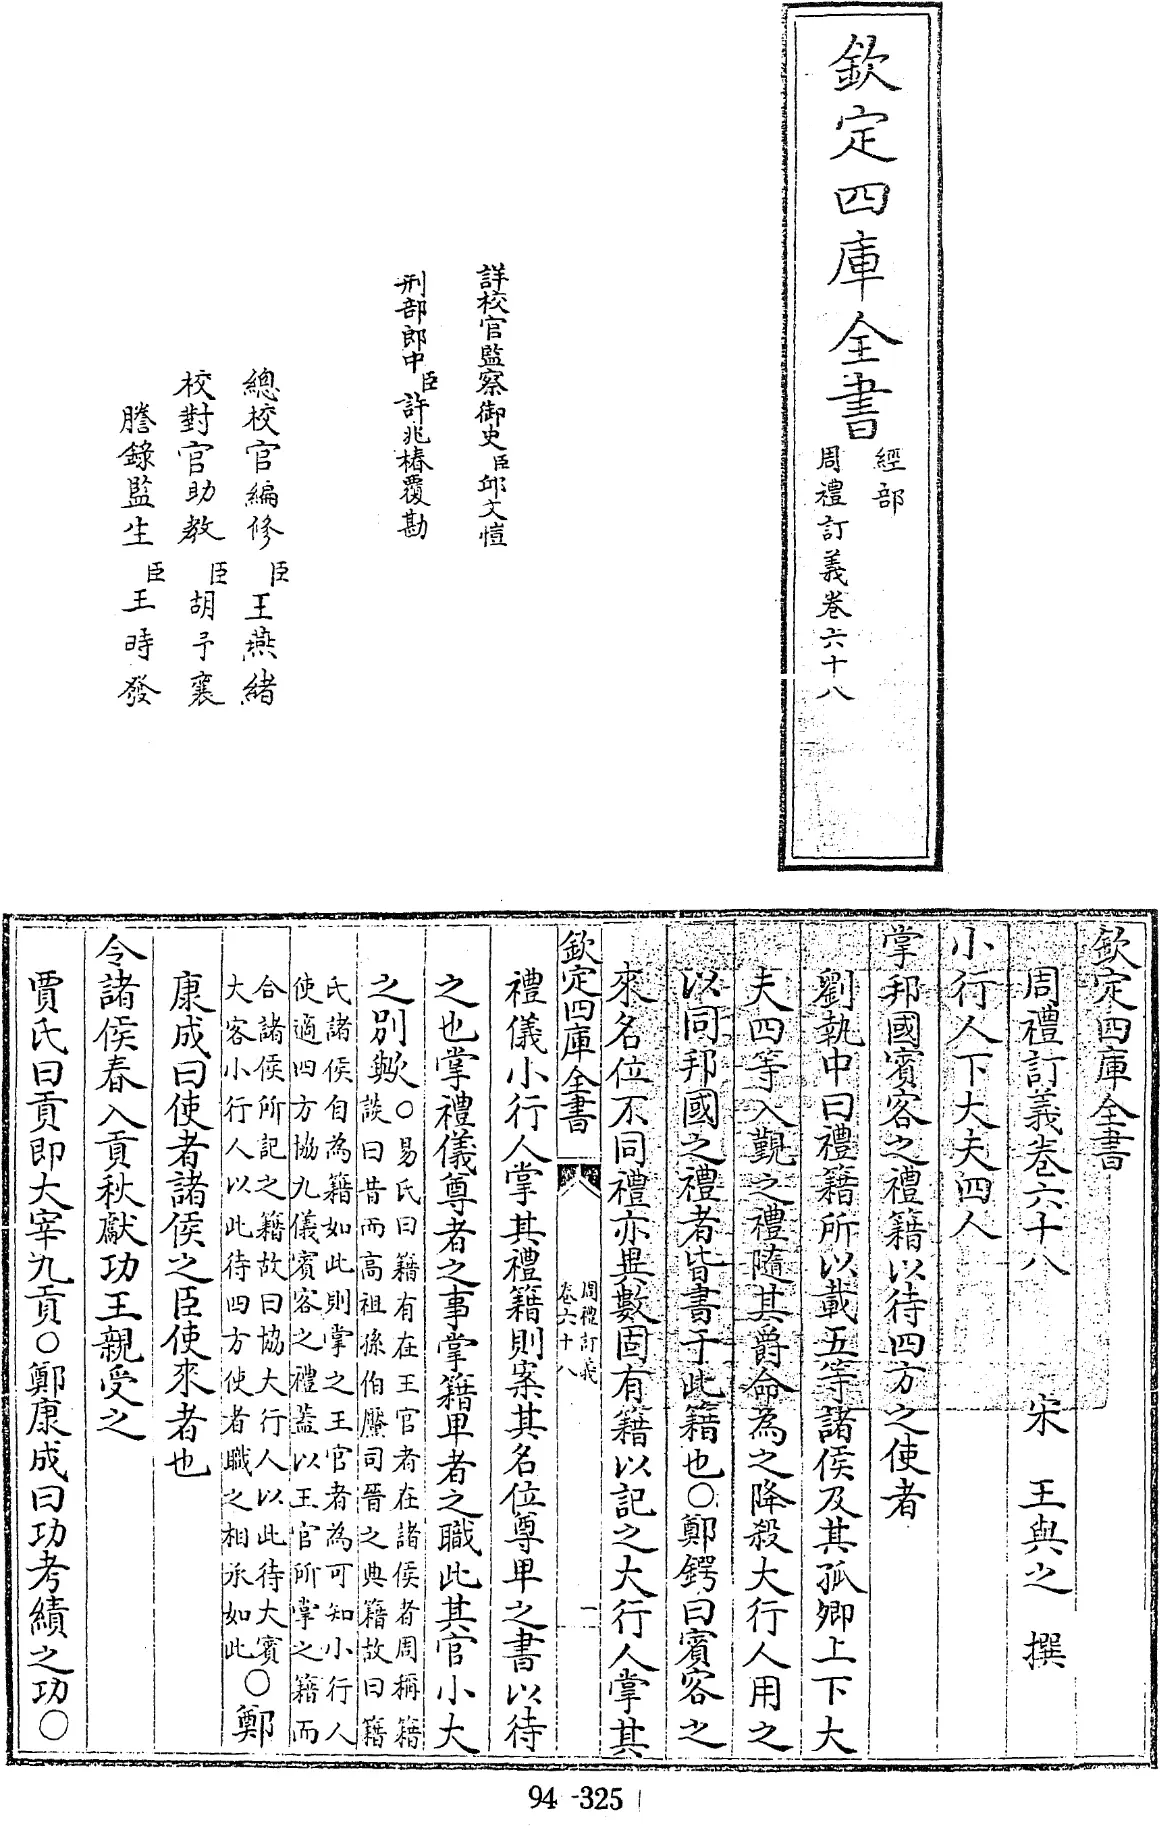 欽定四庫全書
經部
周禮訂義卷六十八
詳校官監察御史臣邱文愷
刑部郎中臣許兆椿覆勘
總校官編修臣王燕緒
校對官助教臣胡予襄
謄錄監生臣王時發
欽定四庫全書
周禮訂義卷六十八 宋 王與之 撰
小行人下大夫四人
掌邦國賓客之禮籍以待四方之使者
劉執中曰禮籍所以載五等諸侯及其孤卿上下大
夫四等入覲之禮隨其爵命為之降殺大行人用之
以同邦國之禮者皆書于此籍也○鄭鍔曰賓客之
來名位不同禮亦異數固有籍以記之大行人掌其
欽定四庫全書
周禮訂義
卷六十八
一
禮儀小行人掌其禮籍則案其名位尊卑之書以待
之也掌禮儀尊者之事掌籍卑者之職此其官小大
之別歟○易氏曰籍有在王官者在諸侯者周稱籍
談曰昔而高祖孫伯黶司晉之典籍故曰籍
氏諸侯自為籍如此則掌之王官者為可知小行人
使適四方協九儀賓客之禮蓋以王官所掌之籍而
合諸侯所記之籍故曰協大行人以此待大賓
大客小行人以此待四方使者職之相承如此○鄭
康成曰使者諸侯之臣使來者也
令諸侯春入貢秋獻功王親受之
賈氏曰貢即大宰九貢○鄭康成曰功考績之功○
94-325